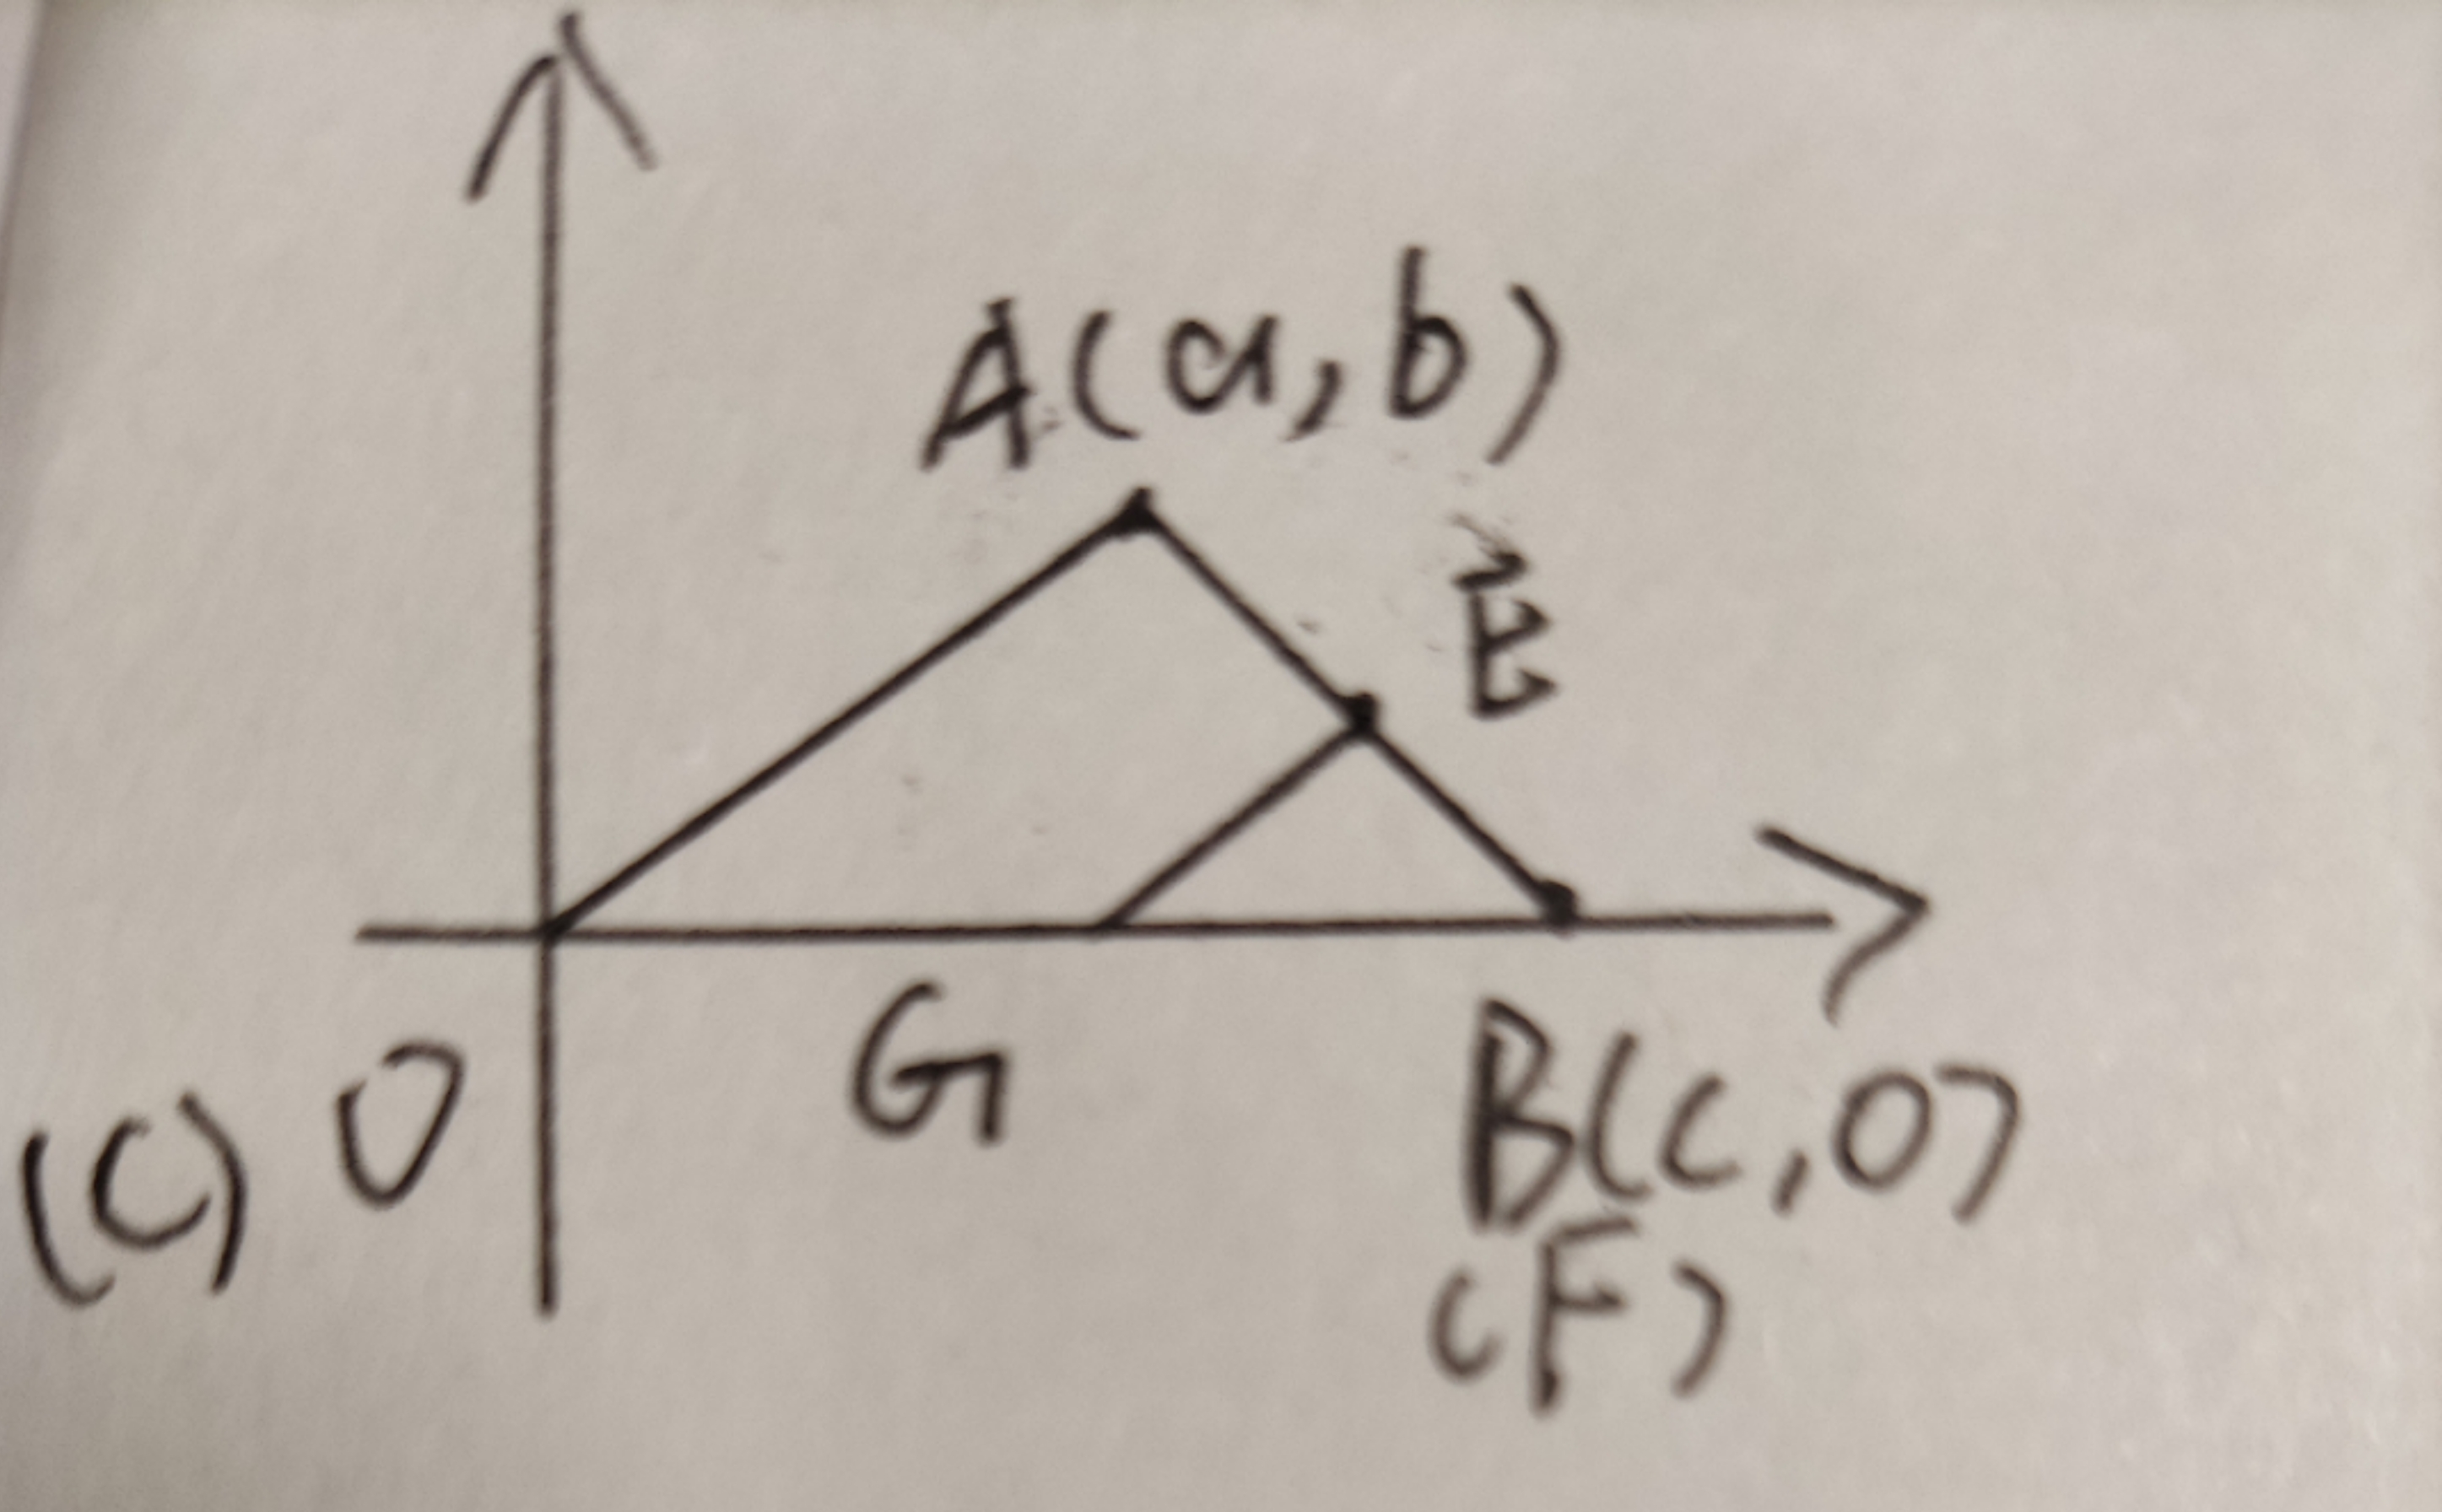 A(a,b)
E
(C) O
G
B(c,0)
(F)